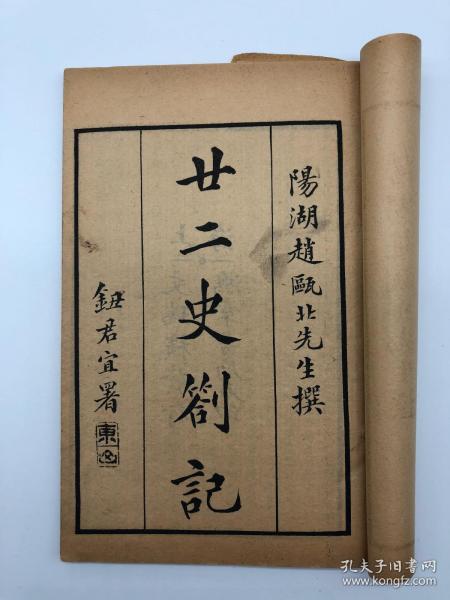 陽湖趙甌北先生撰
廿二史劄記
鈕君宜署
孔夫子旧书网
www.kongfz.com